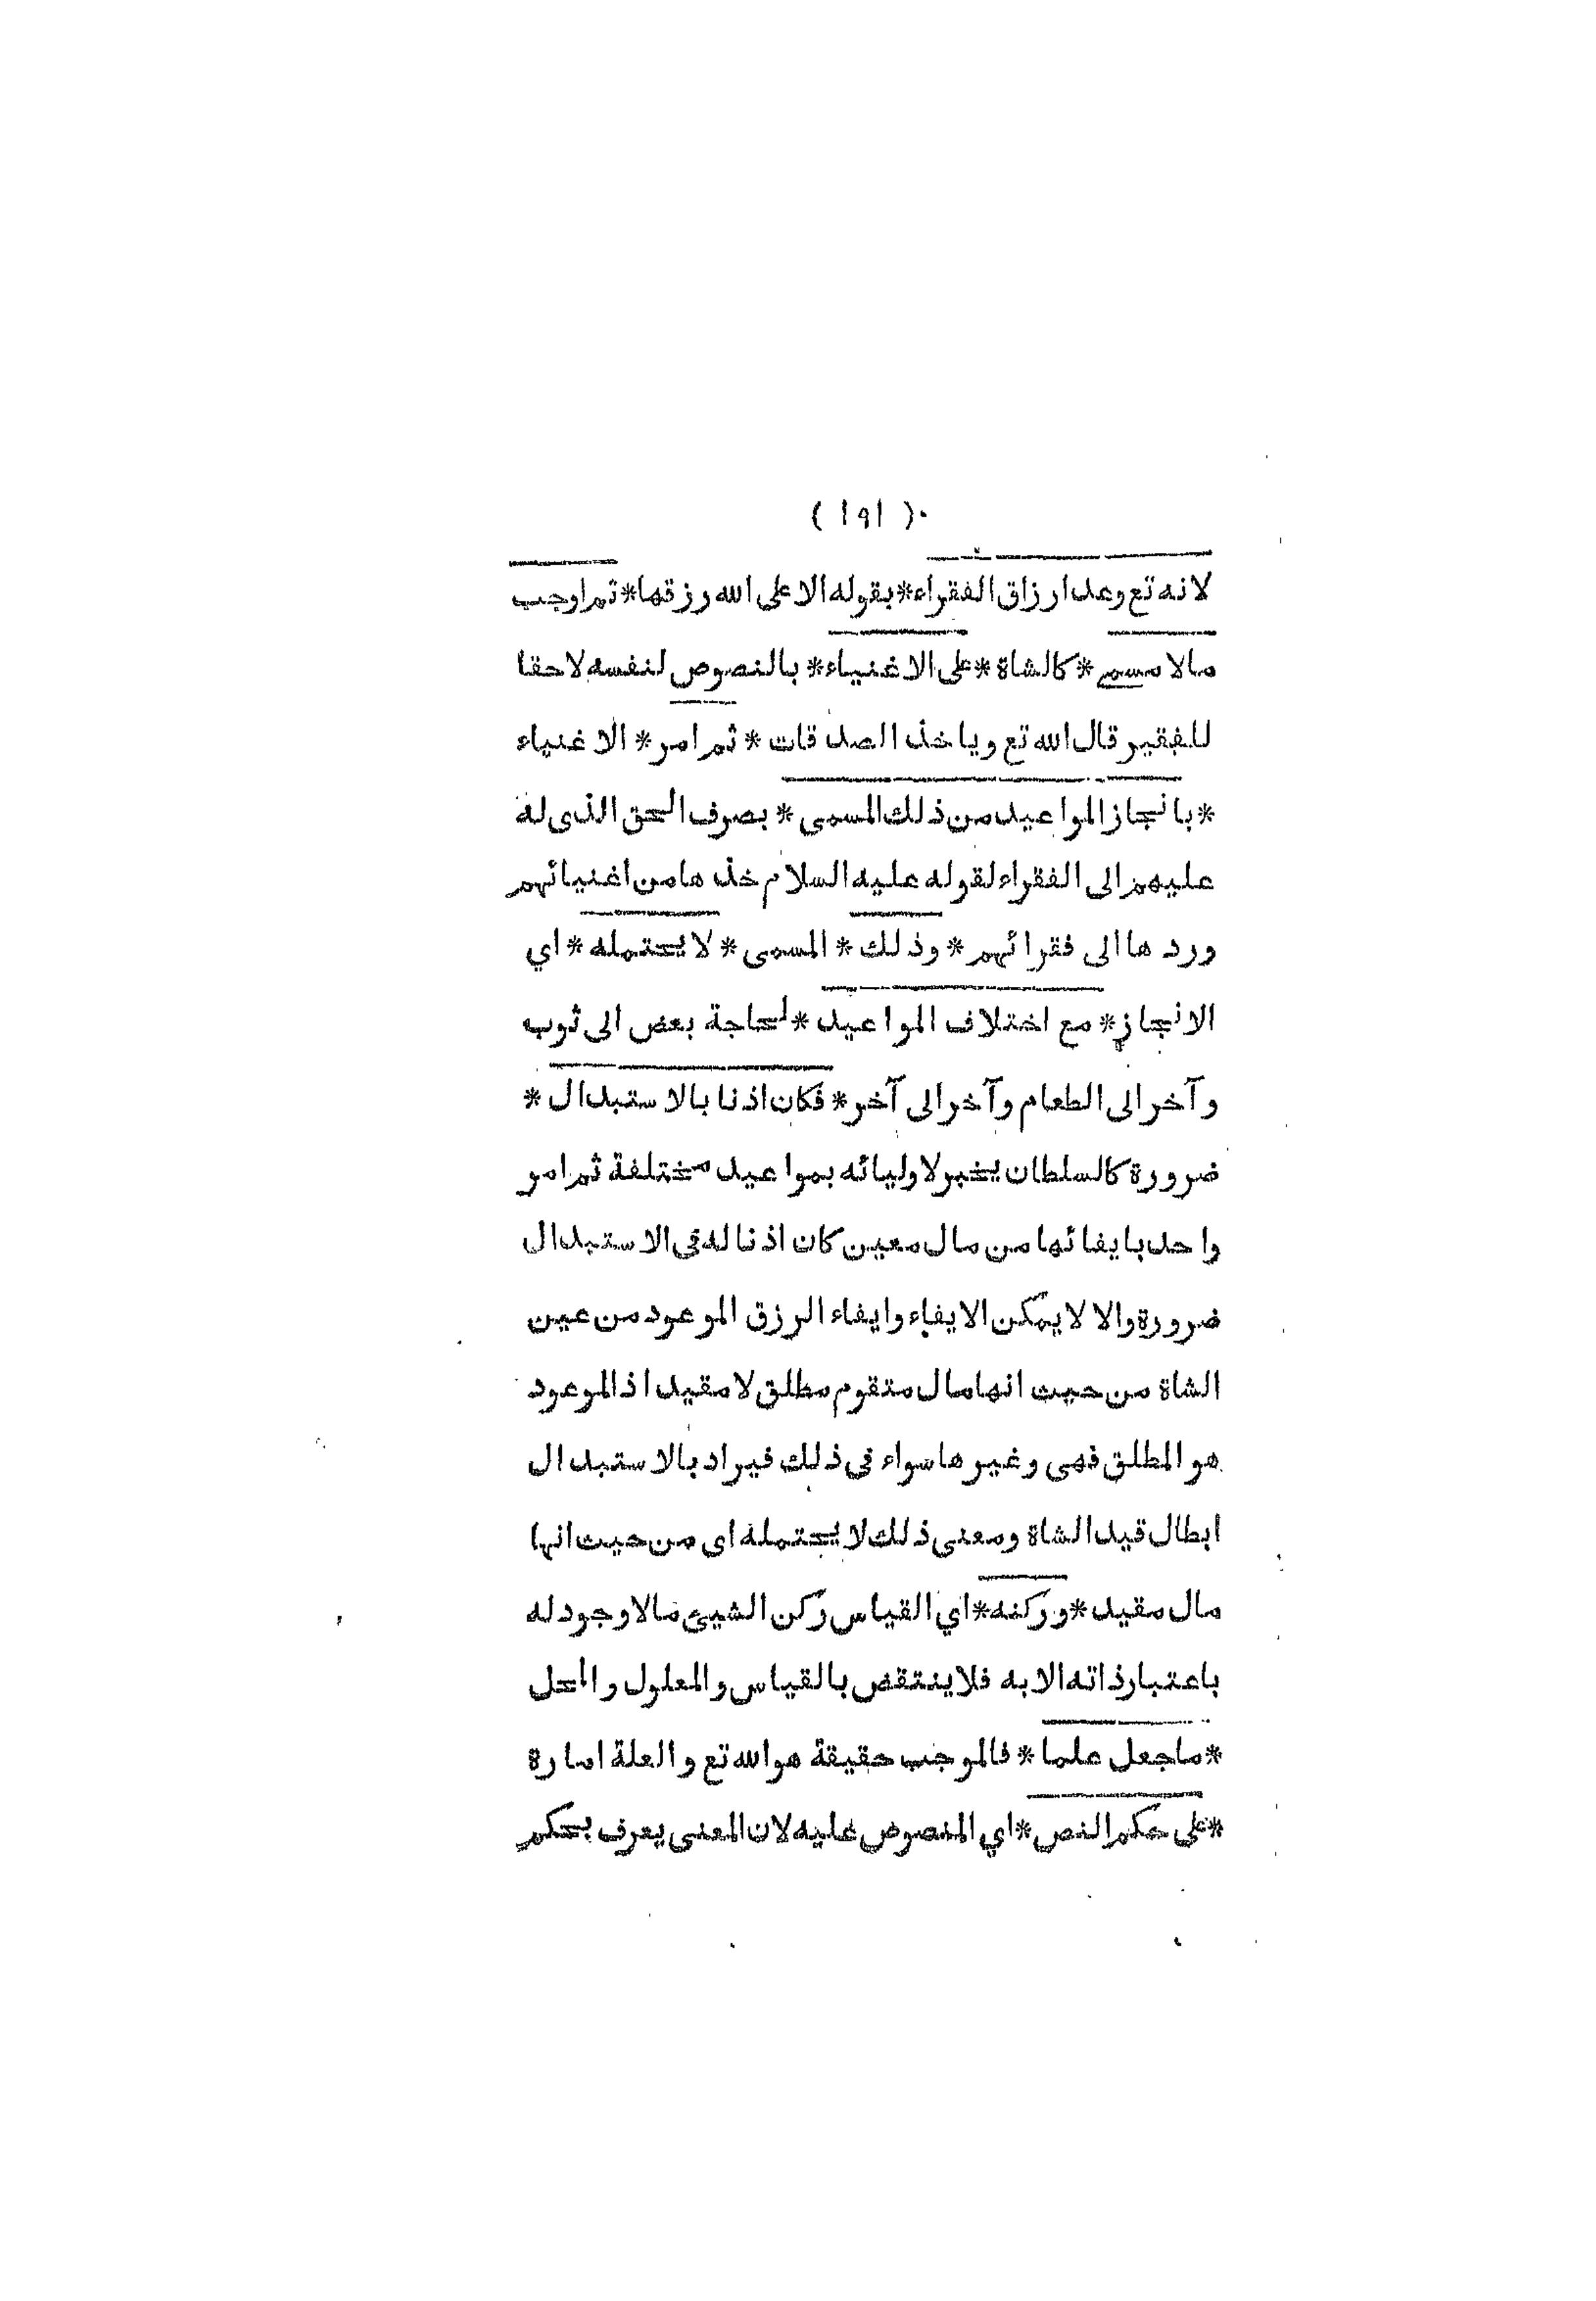 ( ١٩١ )
لانه تع وعد ارزاق الفقراء * بقوله الا على الله رزقها * ثم اوجب
مالا مسمى * كالشاة * على الاغنياء * بالنصوص لنفسه لا حقا
للفقير قال الله تع وياخذ الصدقات * ثم امر * الاغنياء
* بانجاز المواعيد من ذلك المسمى * بصرف الحق الذى له
عليهم الى الفقراء لقوله عليه السلام خذها من اغنيائهم
وردها الى فقرائهم * وذلك * المسمى * لا يحتمله * اي
الانجاز * مع اختلاف المواعيد * لحاجة بعض الى ثوب
وآخر الى الطعام وآخر الى آخر * فكان اذنا بالاستبدال *
ضرورة كالسلطان يخبر لاوليائه بمواعيد مختلفة ثم امر
واحد بايفائها من مال معين كان اذنا له فى الاستبدال
ضرورة والا لا يمكن الايفاء وايفاء الرزق الموعود من عين
الشاة من حيث انها مال متقوم مطلق لا مقيد اذ الموعود
هو المطلق فهى وغيرها سواء فى ذلك فيراد بالاستبدال
ابطال قيد الشاة ومعنى ذلك لا يحتمله اى من حيث انها
مال مقيد * وركنه * اي القياس ركن الشيئ مالا وجود له
باعتبار ذاته الا به فلا ينتقض بالقياس والمعلول والمحل
* ما جعل علما * فالموجب حقيقة هو الله تع والعلة امارة
* على حكم النص * اي المنصوص عليه لان المعنى يعرف بحكم